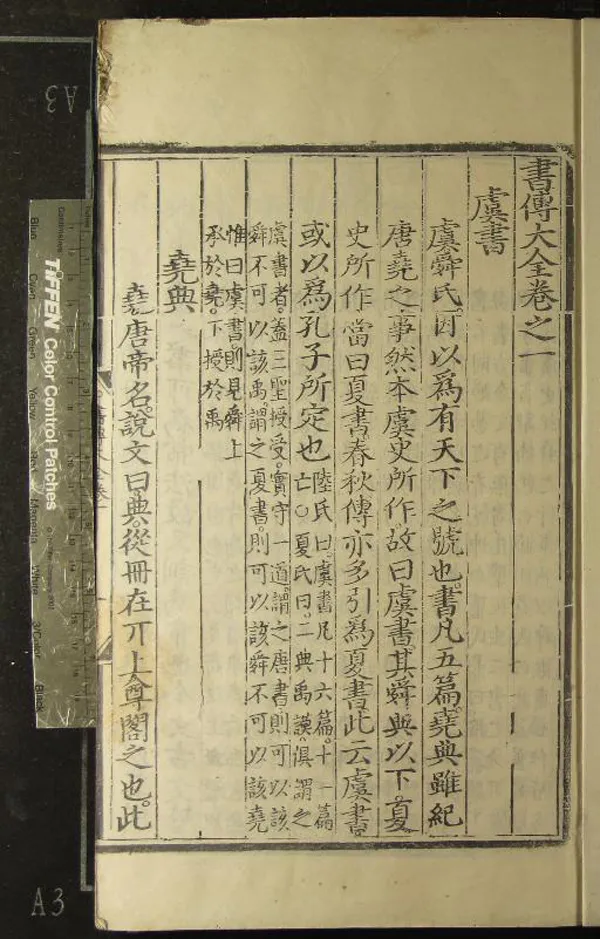 書傳大全卷之一
虞書
虞舜氏因以爲有天下之號也書凡五篇堯典雖紀
唐堯之事然本虞史所作故曰虞書其舜典以下夏
史所作當曰夏書春秋傳亦多引爲夏書此云虞書
或以爲孔子所定也
陸氏曰虞書凡十六篇十一篇
亡○夏氏曰二典禹謨俱謂之
虞書者蓋三聖授受實守一道謂之唐書則可以該
舜不可以該禹謂之夏書則可以該舜不可以該堯
惟曰虞書則見舜上
承於堯下授於禹
堯典
堯唐帝名說文曰典從冊在丌上尊閣之也此
A3
A3
TIFFEN Color Control Patches
Blue
Cyan
Green
Yellow
Red
Magenta
White
3/Color
Black